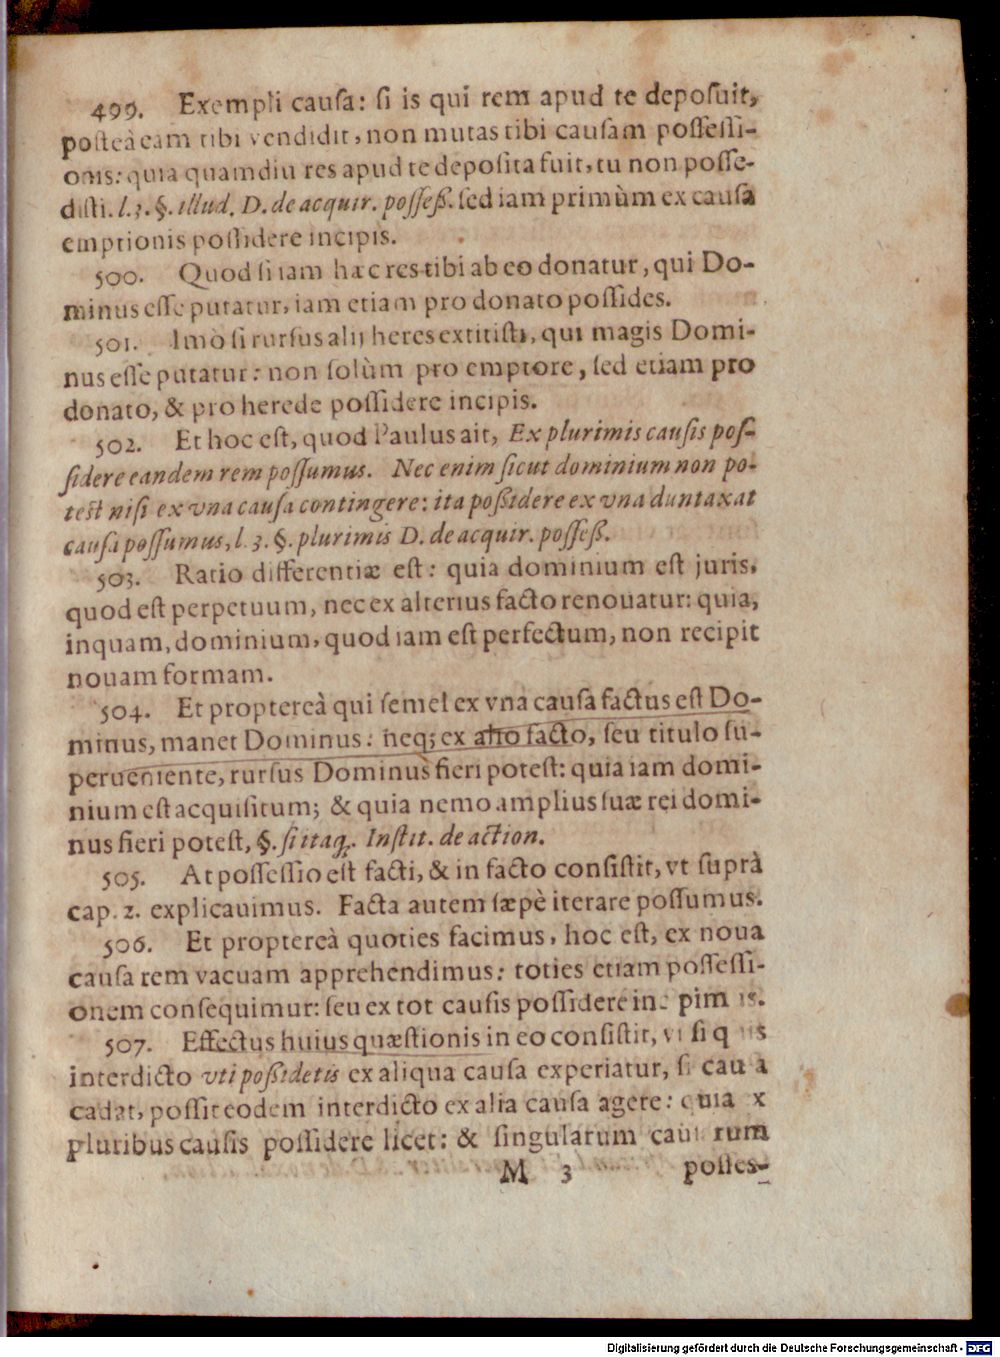 499. Exempli causa: si is qui rem apud te deposuit,
posteà eam tibi vendidit, non mutas tibi causam possessi-
onis: quia quamdiu res apud te deposita fuit, tu non posse-
disti. l. 3. §. illud. D. de acquir. posseß. sed iam primùm ex causa
emptionis possidere incipis.
500. Quod si iam hæc res tibi ab eo donatur, qui Do-
minus esse putatur, iam etiam pro donato possides.
501. Imò si rursus alij heres extitisti, qui magis Domi-
nus esse putatur: non solùm pro emptore, sed etiam pro
donato, & pro herede possidere incipis.
502. Et hoc est, quod Paulus ait, Ex plurimis causis pos-
sidere eandem rem possumus. Nec enim sicut dominium non po-
test nisi ex vna causa contingere: ita poßidere ex vna duntaxat
causa possumus, l. 3. §. plurimis D. de acquir. posseß.
503. Ratio differentiæ est: quia dominium est juris,
quod est perpetuum, nec ex alterius facto renouatur: quia,
inquam, dominium, quod iam est perfectum, non recipit
nouam formam.
504. Et proptereà qui semel ex vna causa factus est Do-
minus, manet Dominus: neq; ex alio facto, seu titulo su-
perueniente, rursus Dominus fieri potest: quia iam domi-
nium est acquisitum; & quia nemo amplius suæ rei domi-
nus fieri potest, §. si itaq. Instit. de action.
505. At possessio est facti, & in facto consistit, vt suprà
cap. 2. explicauimus. Facta autem sæpè iterare possumus.
506. Et proptereà quoties facimus, hoc est, ex noua
causa rem vacuam apprehendimus: toties etiam possessi-
onem consequimur: seu ex tot causis possidere in pim is.
507. Effectus huius quæstionis in eo consistit, vt si q is
interdicto vti poßidetis ex aliqua causa experiatur, si cau a
cadat, possit eodem interdicto ex alia causa agere: quia x
pluribus causis possidere licet: & singularum cau rum
M 3 posses-
Digitalisierung gefördert durch die Deutsche Forschungsgemeinschaft - DFG